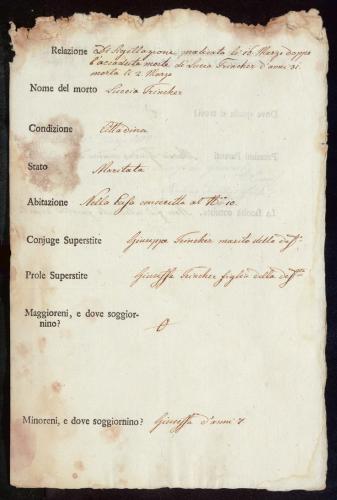 Relazione Di Sigillazione, praticata li 16. Marzo doppo
l'accaduta morte di Lucia Trincker d'anni 31.
morta li 2. Marzo
Nome del morto Luccia Trincker
Condizione Cittadina
Stato Maritata
Abitazione Nella Casa connscritta al No 10.
Conjuge Superstite Giuseppe Trincker marito della def.
Prole Superstite Giuseffa Trincker figlia della def.ta
Maggioreni, e dove soggior-
nino? 0
Minoreni, e dove soggiornino? Giuseffa d'anni 7